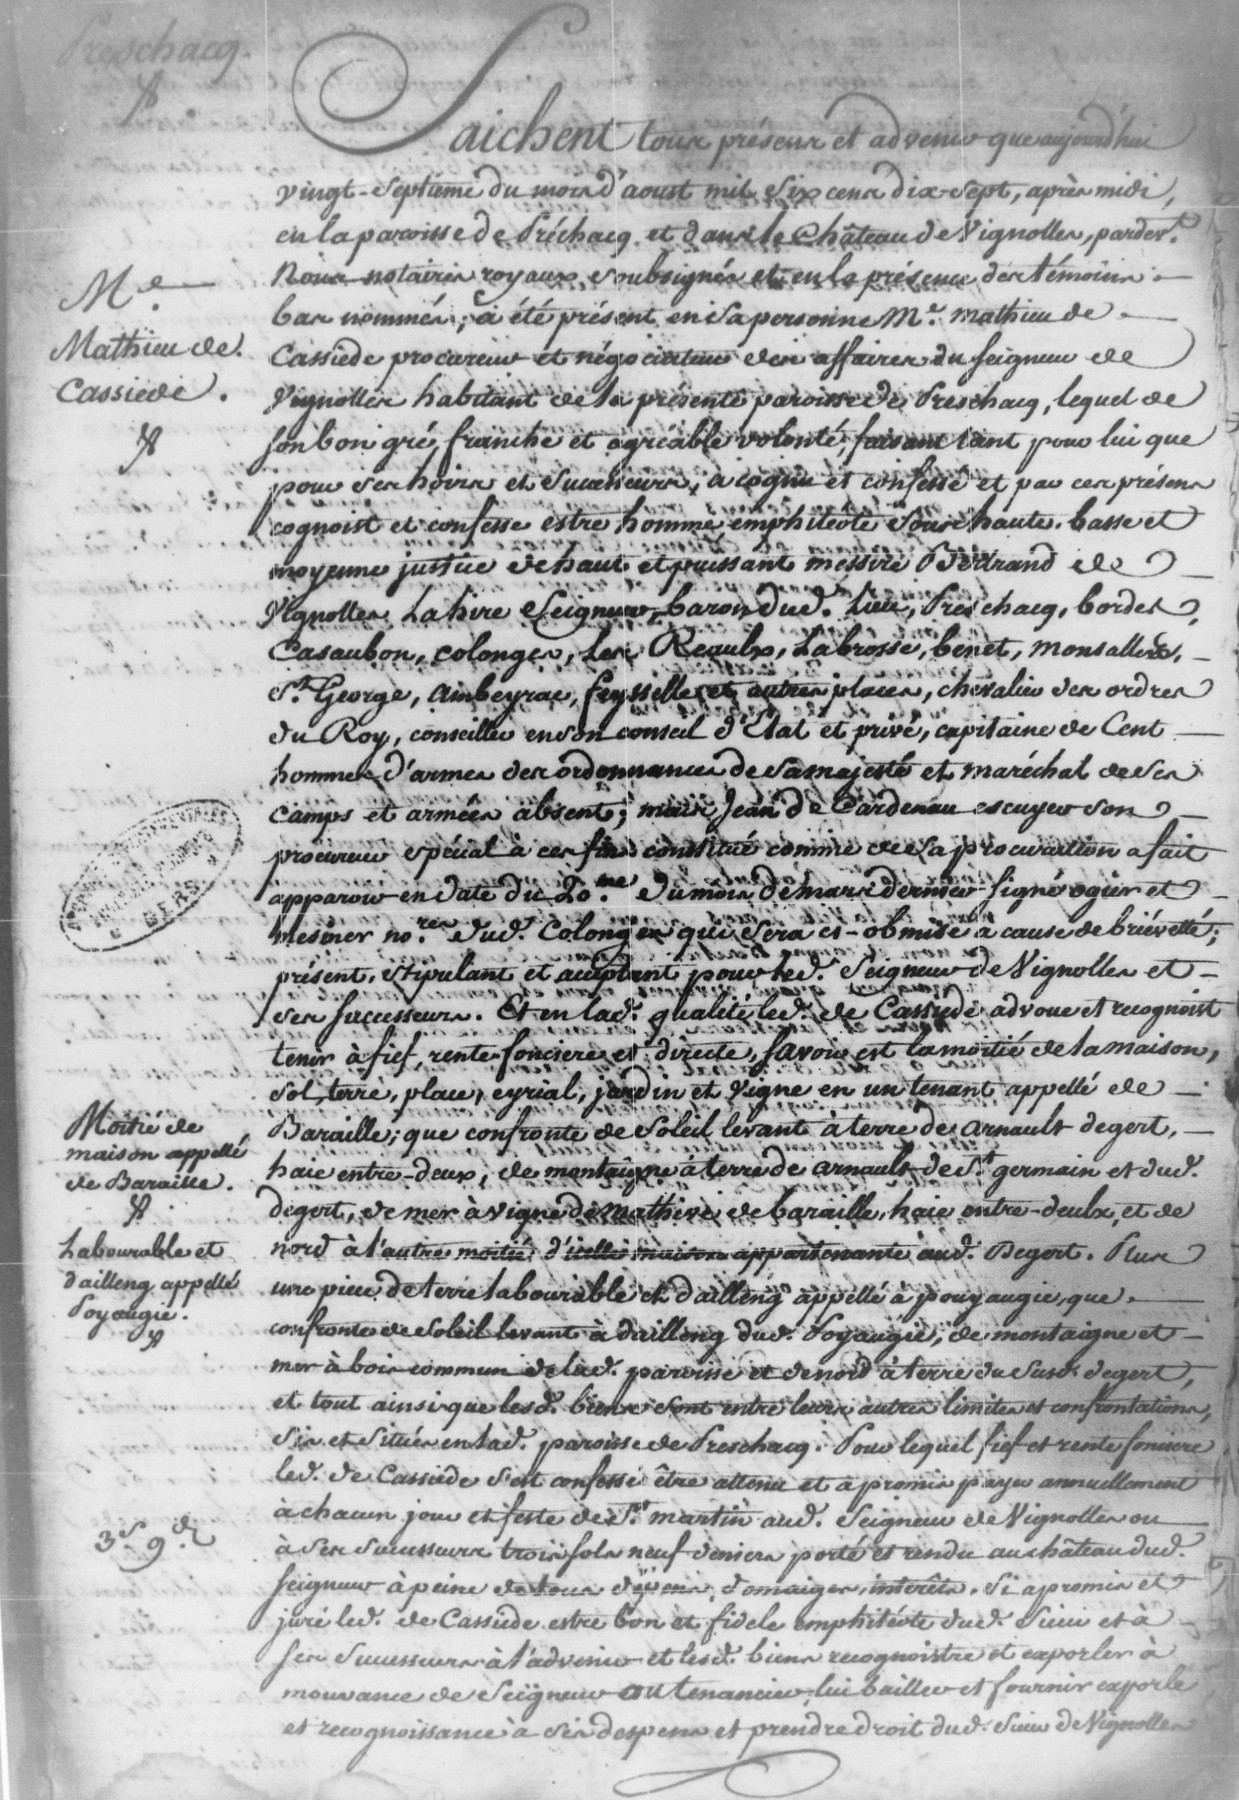 Preschacq.
Saichent tous présens et advenir que aujourd'hui
vingt-septieme du mois d'aoust mil six cens dix-sept, après midi,
en la paroisse de Préchacq et dans le Château de Vignolles, pardevt.
Nous notaires royaux soubsignés et en la présence des témoins
bas nommés, a été présent en sa personne Me. Mathieu de
Me.
Mathieu de
Cassiede.
Cassiede procureur et négociateur des affaires du seigneur de
Vignolles habitant de la présente paroisse de Preschacq, lequel de
son bon gré, franche et agréable volonté, faisant tant pour lui que
pour ses hoirs et successeurs, a cognu et confessé et par ces présens
cognoist et confesse estre homme emphiteote sous haute. basse et
moyenne justice de haut et puissant messire Bertrand de
Vignolles Lahire Seigneur, baron dud. lieu, Preschacq, bordes,
Casaubon, colonges, les Reaulx, Labrosse, benet, monsallers,
St. George, ambeyrac, feysselles et autres places, chevalier des ordres
du Roy, conseiller en son conseil d'Etat et privé, capitaine de Cent
hommes d'armes des ordonnances de sa majesté et maréchal de ses
camps et armées absent; mais Jean de Cardenau escuyer son
procureur spécial à ces fins constitué comme de sa procuration a fait
apparoir en date du 20.me du mois de mars dernier signé ogier et
mesmer no.res dud. Colonges qui sera ci-obmise a cause de briéveté;
présent, stipulant et acceptant pour led. Seigneur de Vignolles et
ses successeurs. Et en lad. qualité led. de Cassiede advoue et recognoist
tenir à fief, rente fonciere et directe, savoir est la moitié de la maison,
sol, terre, place, eyrial, jardin et vigne en un tenant appellé de
Moitié de
maison appellé
de Baraille.
Baraille; que confronte de soleil levant à terre de arnault degert,
haie entre-deux, de montaigne à terre de arnault de St. germain et dud.
degert, de mer à vigne de mathive de baraille, haie entre-deulx, et de
nord à l'autre moitié d'icelle maison appartenante aud. Degert. Plus
Labourable et
dailleng appellé
Poyaugie.
une piece de terre labourable et dailleng appellé à pouyaugie, que
confronte de soleil levant à dailleng dud. Poyaugie, de montaigne et
mer à bois commun de lad. paroisse et de nord à terre du susd. degert,
et tout ainsi que lesd. biens sont entre leurs autres limites et confrontations,
sis et situés en lad. paroisse de Preschacq. Pour lequel fief et rente fonciere
led. de Cassiede s'est confessé être attenu et a promis payer annuellement
à chacun jour et feste de St. martin aud. Seigneur de Vignolles ou
3s 9d
à ses successeurs trois sols neuf deniers porté et rendu au château dud.
seigneur à peine de tous dépens, domaiges, interêts. Si a promis et
juré led. de Cassiede estre bon et fidele emphitéote dud. Sieur et à
ses successeurs à l'advenir et lesd. biens recognoistre et exporler à
mouvance de Seigneur ou tenancier, lui bailler et fournir exporle
et recognoissance à ses despens et prendre droit dud. Sieur de Vignolles
GERS